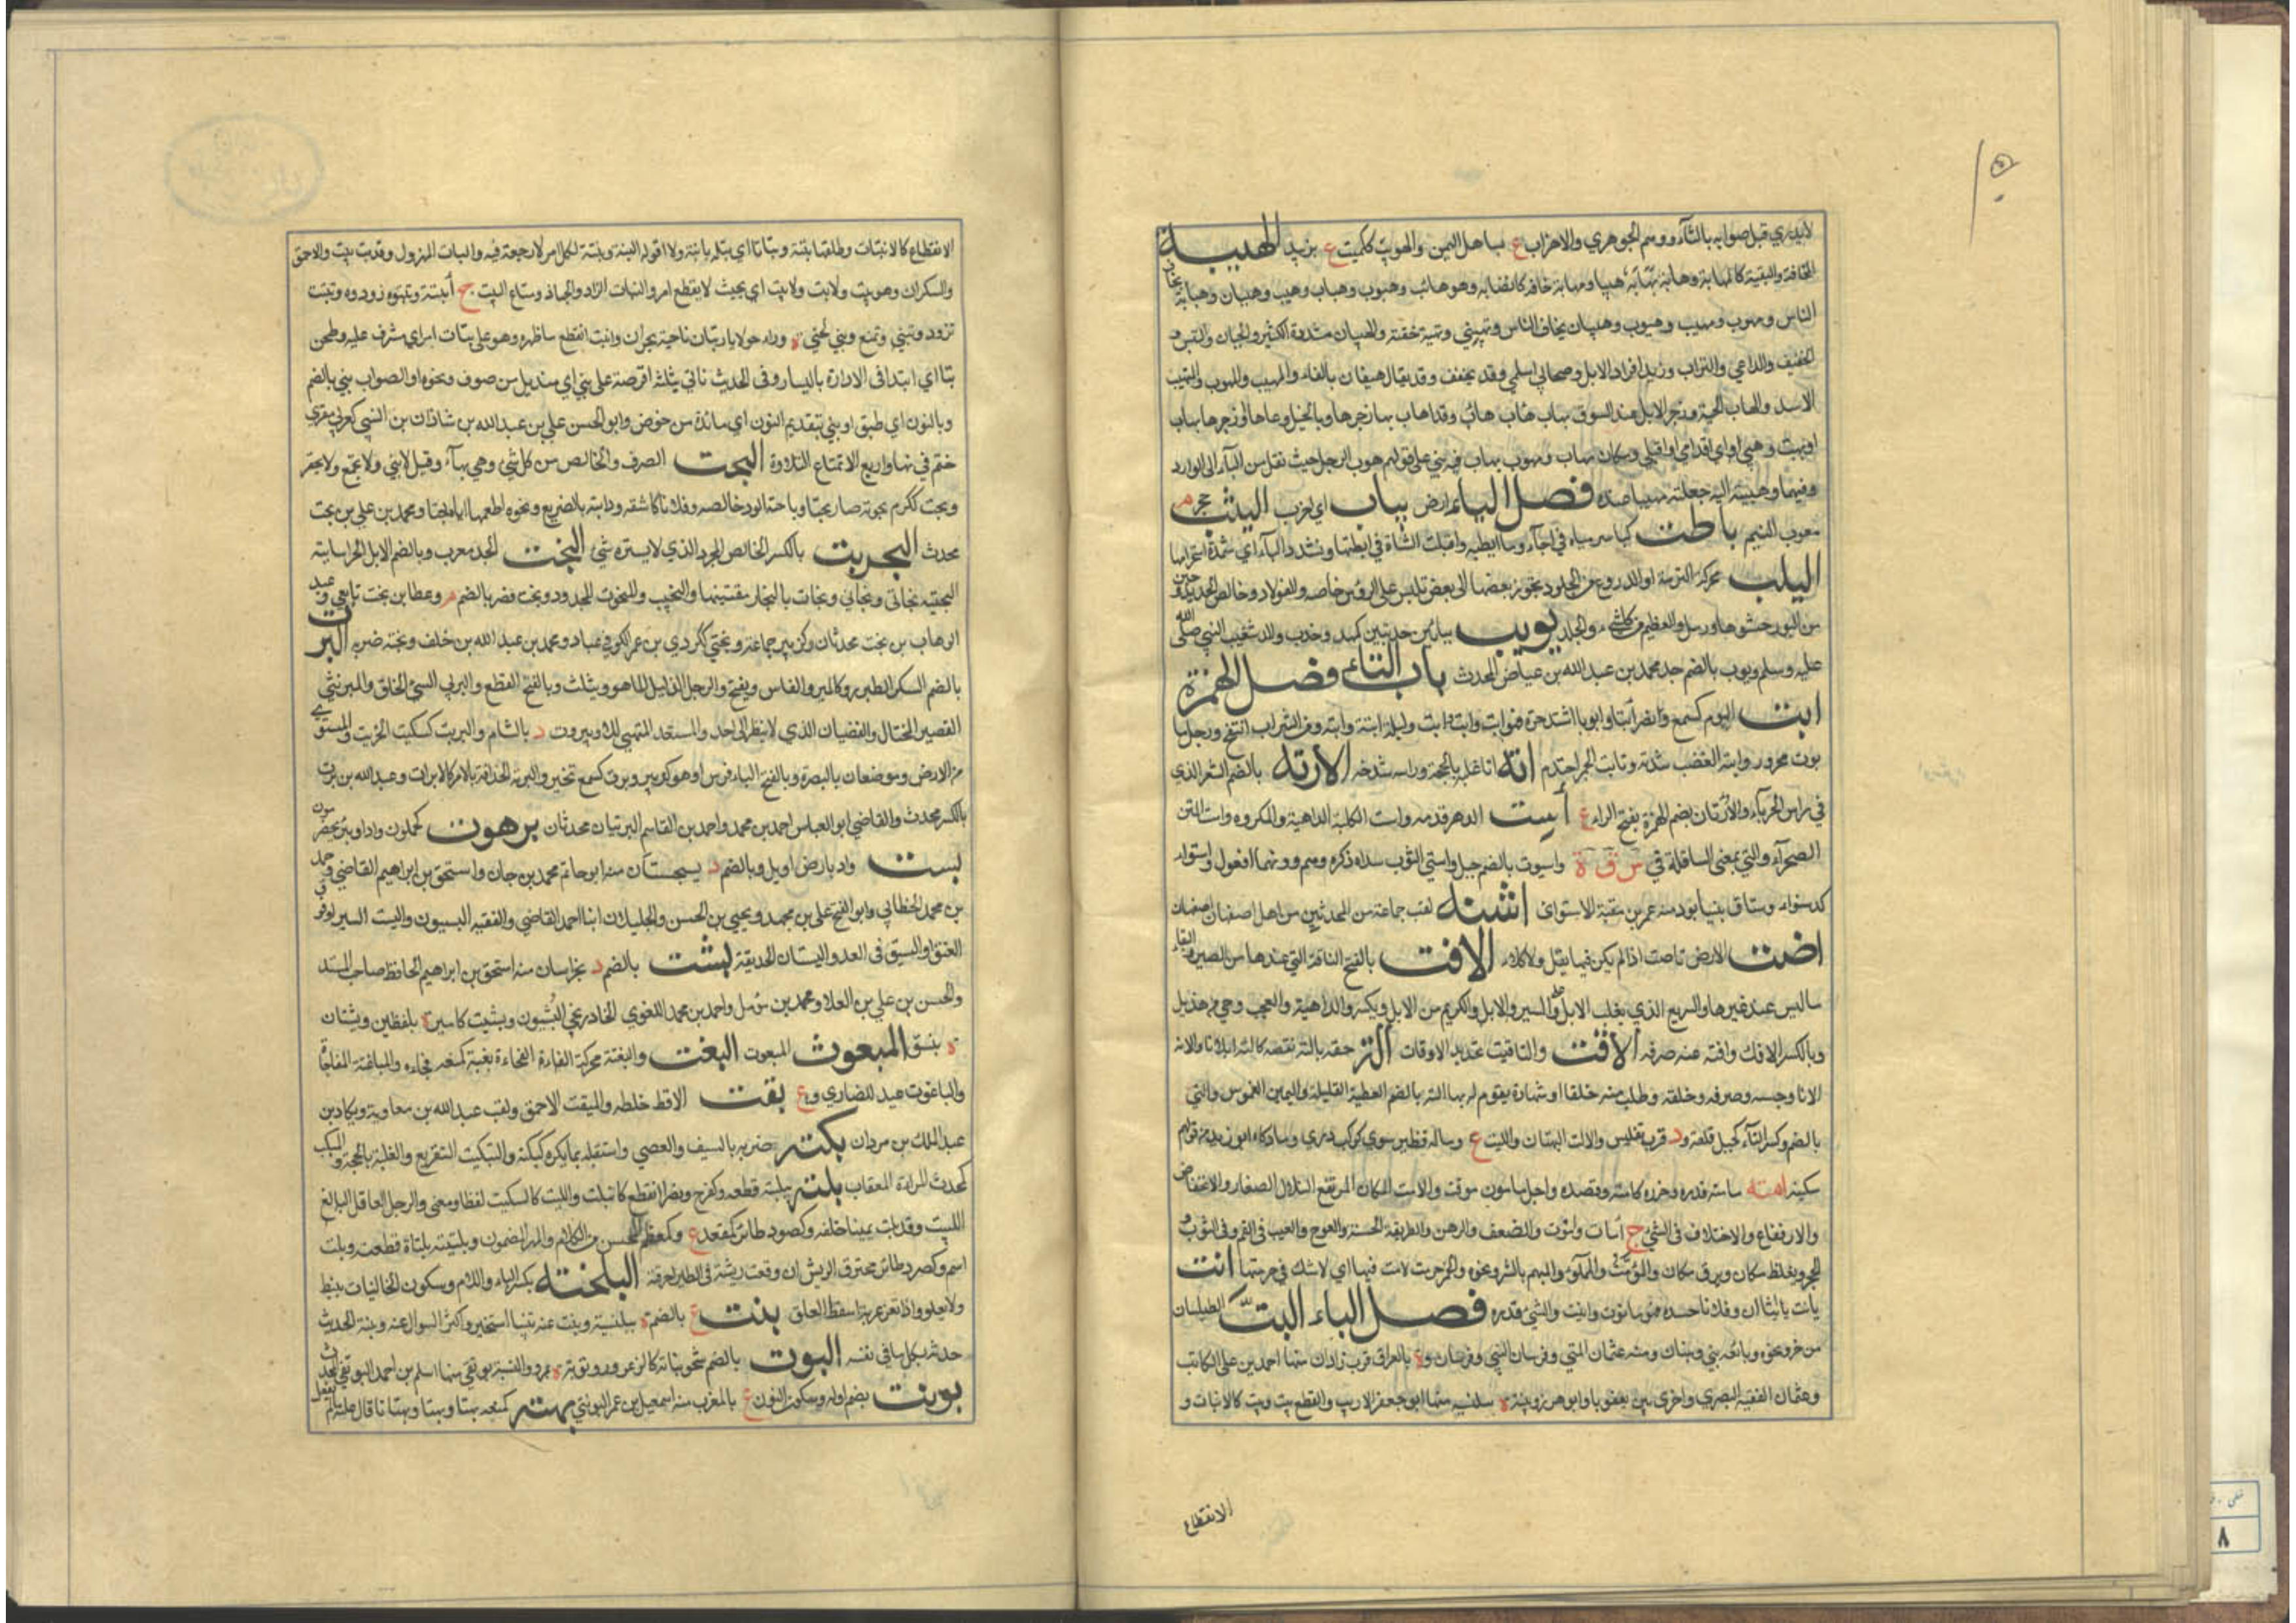 لايدري قبل صوابه بالتاء ووسم الجوهري والاحزاب ع مباهل اليمن والهوب ككميت ع بزبيد الهيبة
المخافة والتقية كالمهابة وهابه يهابه هيبا ومهابة خافه كاهتابه وهو هائب وهيوب وهياب وهيب وهيبان وهيابة يخاف
الناس ومهوب ومهيب وهيوب وهيبان يخاف الناس وتهيبني وتهيبته خفته والهيبان مشددة الكثير والجبان والتيس و
الخفيف والراعي والتراب وزبد افواه الابل وصحابي اسلمي وقد يخفف وقد يقال هيفان بالفاء والمهيب والمهوب والمتهيب
الاسد والهاب الحية وزجر الابل عند السوق بهاب هاب هاب وقد اهاب بها زجرها وبالخيل دعاها او زجرها بهاب
اوبهب وهبي اي اقدمي واقبلي ومكان مهاب ومهوب يهاب فيه بني على قولهم هوب الرجل حيث نقل من الياء الى الواو
فيهما وهيبته اليه جعلته مهيبا عنده فصل الياء ارض يباب اي خراب اليشب حجر م
معرب اليشم ياطب كياسر مياه في اجأ وما ايطبه واقبلت الشاة في ايطبتها وتشدد الباء اي شدة استحرامها
اليلب محركة الترسة او الدروع من الجلود يخرز بعضها الى بعض تلبس على الرؤس خاصة والفولاذ وخالص الحديد و
من البور حشوها ورسل والعظيم من كل شيء والجلد يويب بيائين كمهدد وجندب والد شعيب النبي صلى الله
عليه وسلم ويوب بالضم جد محمد بن عبد الله بن عياض المحدث باب التاء فصل الهمزة
ابت اليوم كسمع ونصر ابتا وابوتا اشتد حره فهو ابت وابت وليلة ابتة وابته ومن الشراب انتفخ ورجل ما
بوت محرور وابتة الغضب شدته وتابت الجمر احتدم اته اتا غلبه بالحجة وراسه شدخه الارته بالضم الشعر الذي
في راس الحرباء والارتان بضم الهمزة بفتح الراء ع أست الدهر قدمه واست الكلبة الداهية والمكروه واست المتن
الصحراء والتي بمعنى السافلة في س ت ه واسيوت بالضم جبل واستي الثوب سداه ذكره وهم ووزنهما افعول واستوا
كدستواء رستاق بنيسابور منه عمر بن عقبة الاستوائي اشته لقب جماعة من المحدثين من اهل اصفهان
اضت الارض تاضت اذا لم يكن فيها بقل ولا كلاء الافت بالفتح الناقة التي عندها من الصبر والبقاء
ما ليس عند غيرها والسريع الذي يغلب الابل على السير والابل والكريم من الابل ويكسر والداهية والعجب وحي من هذيل
وبالكسر الافك وافته عنه صرفه الاقت والتاقيت تحديد الاوقات الت حقه يالته نقصه كالته ايلاتا والاته
الاتا وحبسه وصرفه وحلفه وطلب منه حلفا او شهادة يقوم له بها الته بالضم العطية القليلة واليمين الغموس والتي
بالضم وكسر التاء كجبل قلعة و د قرب تفليس والالت البهتان والليت ع وماله نظير سوى كوكب دري وما ذكاه ابو زيد من قولهم
سكينة امته يامته قدره وحزره كامته وقصده واجل مامون موقت والامت المكان المرتفع التلال الصغار والانخفاض
والارتفاع والاختلاف في الشيء ج امات واموت والضعف والوهن والطريقة الحسنة والعوج والعيب في الفم وفي الثوب و
الحجر ويغلظ مكان ويرق مكان والمؤمت والمملو والمتهم بالشر ونحوه والخمر حرمت لا امت فيها اي لا شك في حرمتها انت
يانت يانيتا ان وفلانا حسده فهو مانوت وانيت والشيء قدره فصل الباء البت الطيلسان
من خز ونحوه وبائعه بتي وبتات ومنه عثمان البتي وفرسان البتي وفرسان وة بالعراق قرب زاذان منها احمد بن علي الكاتب
وعثمان الفقيه البصري واخرى بين بعقوبا وابو هرز وبتة ة بلنسية منها ابو جعفر الاديب والقطع يبت ويبت كالابتات و
الانقطاع
الانقطاع كالانبتات وطلقها بتة وبتاتا اي بتلة باينة ولا افعله البتة وبتة لكل امر لا رجعة فيه والبات المهزول وقد بت يبت والاحمق
والسكران وهو يبت ولا يبت ولا يبت اي بحيث لا يقطع امرا والبتات الزاد والجهاز ومتاع البيت ج ابتة وبتتوه زودوه وتبتت
تزود وتبتي وتمتع وبتي كحتي ة وراء حولايا وبتان ناحية بحران وانبت انقطع ماء ظهره وهو على بتات امر اي مشرف عليه وطحن
بتا اي ابتدا في الادارة باليسار وفي الحديث فاتي بثلثة اقرصة على بتي اي منديل من صوف ونحوه او الصواب بني بالضم
وبالنون اي طبق او نبي بتقديم النون اي مائدة من خوص وابو الحسن علي بن عبد الله بن شاذان بن البتي كعربي مقري
ختم في نهار اربع الا تمتاع التلاوة البحت الصرف والخالص من كل شيء وهي بهاء وقيل لا يثنى ولا يجمع ولا يحقر
وبحت ككرم بحوتة صار بحتا وباحته الود خالصه وفلانا كاشفه ودابته بالضريع ونحوه اطعمها اياه بحتا ومحمد بن علي بن بحت
محدث البحريت بالكسر الخالص المجرد الذي لا يستره شيء البخت الجد معرب وبالضم الابل الخراسانية
كالبختية بخاتي وبخاتي وبخات والبخات مقتنيها والبخيت والمبخوت المجدود وبخت نصر بالضم م وعطا بن بخت تابعي وعبد
الوهاب بن بخت محدثان وكزبير جماعة وبختي ككردي بن عمر الكوفي عباد ومحمد بن عبد الله بن خلف وبخته ضربه البرت
بالضم السكر الطبرزد كالمبرت والفاس ويفتح والرجل الدليل الماهر ويثلث وبالفتح القطع والبرتي السيئ الخلق والمبرنتي
القصير المختال والغضبان الذي لا ينظر الى احد والمستعد المتهيئ للامر وبيروت د بالشام والبريت كسكيت الخريت والمستوي
من الارض وموضعان بالبصرة وبالفتح البتاء فرس او هو كزبير وبرت كسمع تحير والبرتة الحذاقة بالامر كالابرات وعبد الله بن برت
بالكسر محدث والقاضي ابو العباس احمد بن محمد واحمد بن القاسم البرتيان محدثان برهوت كحملون واد او بئر بحضرموت
بست واد بارض اربل وبالضم د بسجستان منه ابو حاتم محمد بن حبان واسحق بن ابراهيم القاضي وحمد
بن محمد الخطابي وابو الفتح علي بن محمد ويحيى بن الحسن والخليلان ابنا احمد القاضي والفقيه البستيون والبست السير او فوق
العنق او السبق في العدو والبستان الحديقة بشت بالضم د بخراسان منه اسحق بن ابراهيم الحافظ صاحب المسند
والحسن بن علي بن العلا ومحمد بن مؤمل واحمد بن محمد اللغوي الخارزنجي البشتيون وبشيت كامير ة بفلسطين وبشتان
ة بنسف المبعوت المبعوث البغت والبغتة محركة الفجاة الفجاءة بغته كمنعه فجاءه والمباغتة المفاجاة
والباغوت عيد للنصارى وع بقت الاقط خلطه والمبقت الاحمق ولقب عبد الله بن معاوية وبكار بن
عبد الملك بن مروان بكته ضربه بالسيف والعصا واستقبله بما يكره كبكته والتبكيت التقريع والغلبة بالحجة والمبكت
كمحدث المراة المعقاب بلته يبلته قطعه وكفرح ونصر انقطع كانبلت والبليت كالسكيت لفظا ومعنى والرجل العاقل البليغ
اللبيب وقد بلت يمينا حلفه وكصرد طائر كمقعد ع وكمعظم المحسن من الكلام والمهر المضمون وبلتيته بلتاة قطعته وبلت
اسم وكصرد طائر محترق الريش ان وقعت ريشة في الطير احرقته البلختة بكسر الباء واللام وسكون الخاء نبات ينبط
ولا يعلو واذا تغرغر بها اسقط العلق بنت ع بالضم ة ببلنسية وبنت عنه تبنيتا استخبر واكثر السوال عنه وبنته الحديث
حدثه بكل ما في نفسه البوت بالضم شجر نباته كالزعرور وبوتة ة بمرو والنسبة بوتقي منها اسلم بن احمد البوتقي المحدث
بونت بضم اوله وسكون النون ع بالمغرب منه اسمعيل بن عمر البونتي بهته كمنعه بهتا وبهتا وبهتانا قال عليه ما لم يفعل